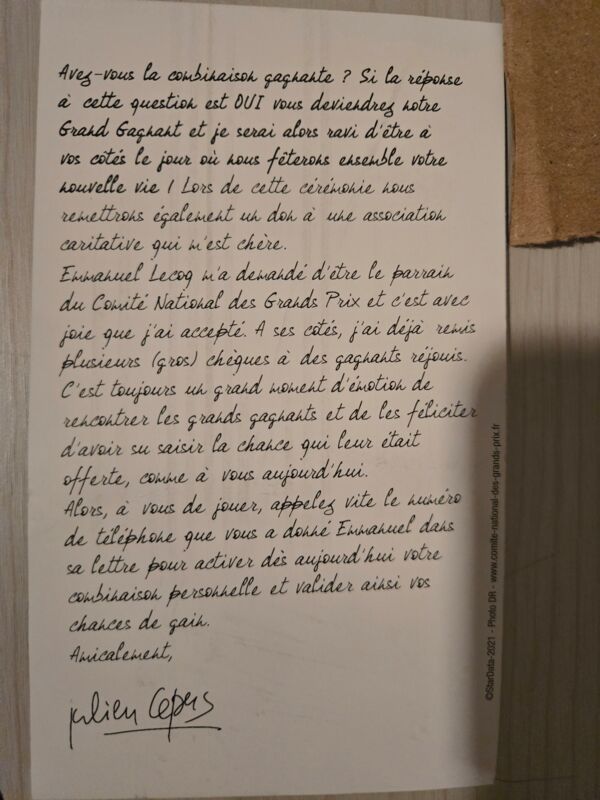 Avez-vous la combinaison gagnante ? Si la réponse
à cette question est OUI vous deviendrez notre
Grand Gagnant et je serai alors ravi d'être à
vos côtés le jour où nous fêterons ensemble votre
nouvelle vie ! Lors de cette cérémonie nous
remettrons également un don à une association
caritative qui m'est chère.
Emmanuel Lecoq m'a demandé d'être le parrain
du Comité National des Grands Prix et c'est avec
joie que j'ai accepté. A ses côtés, j'ai déjà remis
plusieurs (gros) chèques à des gagnants réjouis.
C'est toujours un grand moment d'émotion de
rencontrer les grands gagnants et de les féliciter
d'avoir su saisir la chance qui leur était
offerte, comme à vous aujourd'hui.
Alors, à vous de jouer, appelez vite le numéro
de téléphone que vous a donné Emmanuel dans
sa lettre pour activer dès aujourd'hui votre
combinaison personnelle et valider ainsi vos
chances de gain.
Amicalement,
julien Lepers
©StarData-2021 - Photo DR - www.comite-national-des-grands-prix.fr